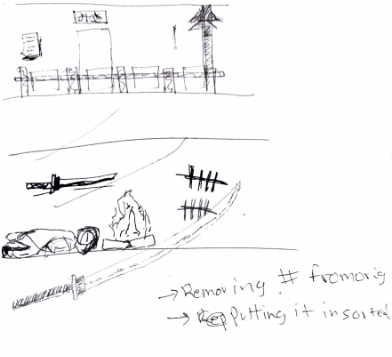 → Removing # from orig
→ Putting it in sorted